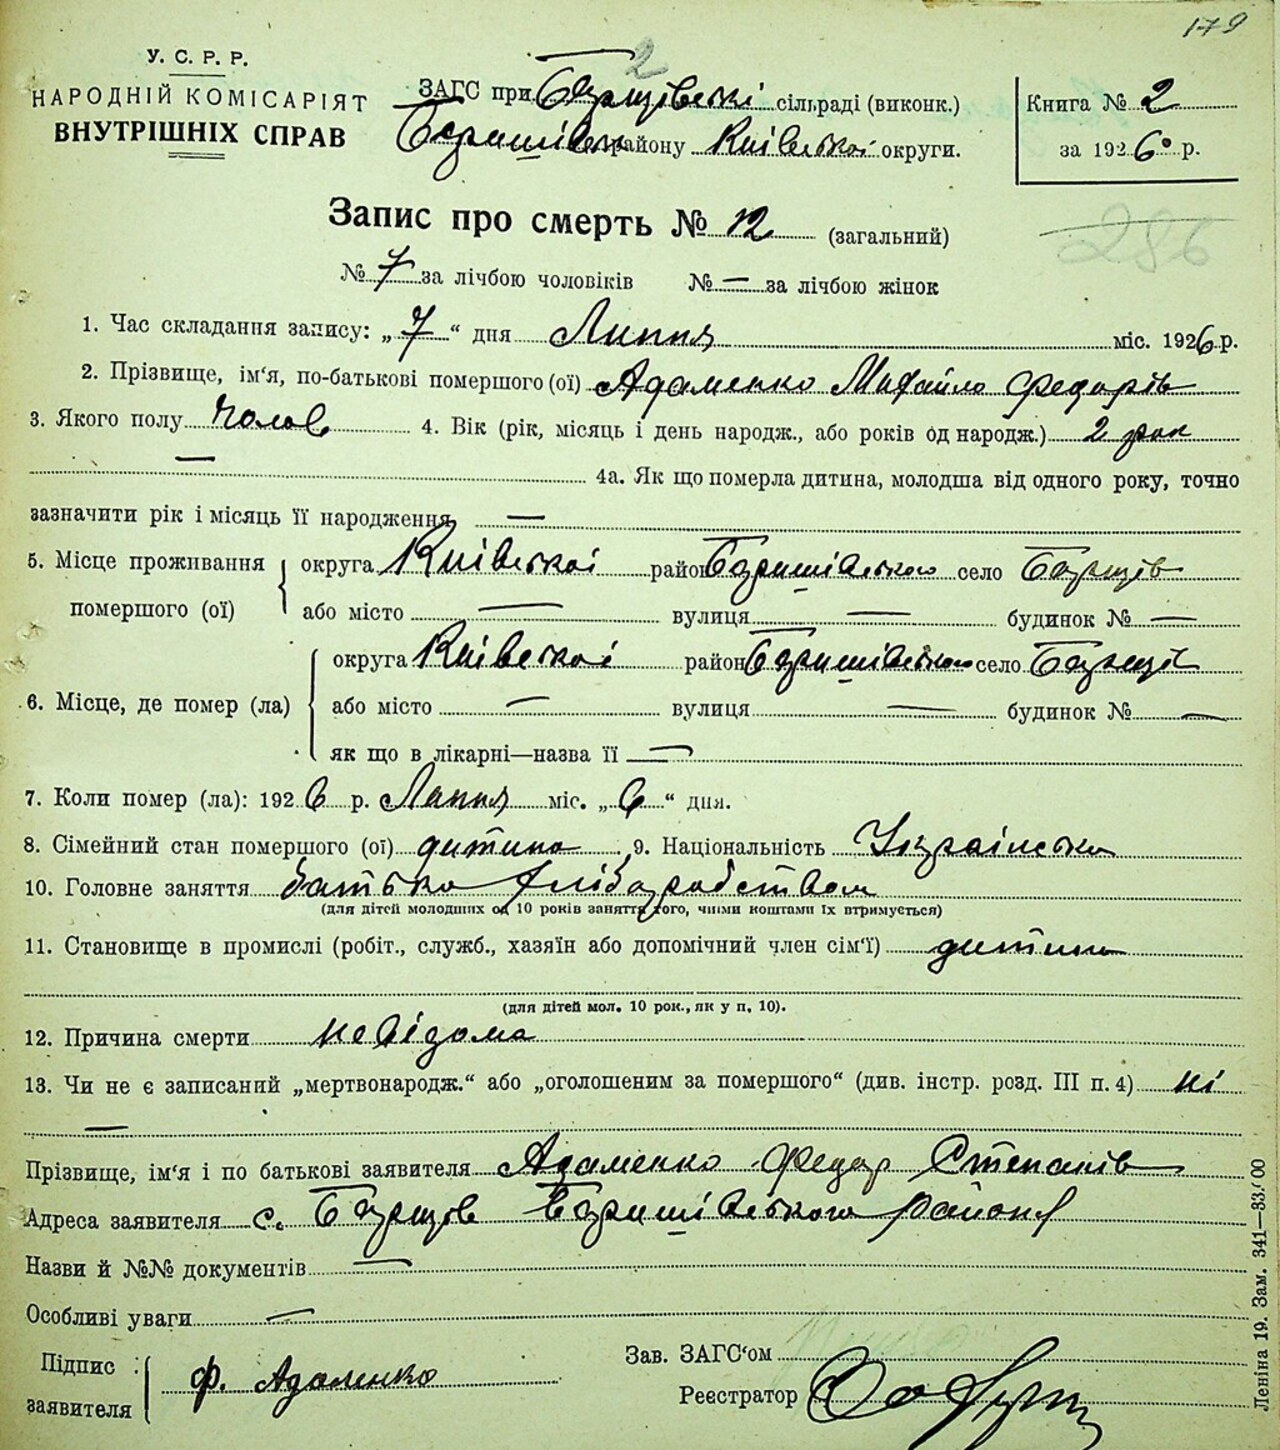 179
У. С. Р. Р.
НАРОДНІЙ КОМІСАРІЯТ
ВНУТРІШНІХ СПРАВ
2
ЗАГС при Борщівські сільраді (виконк.)
району Київської округи.
Книга № 2
за 1926 р.
286
Запис про смерть № 12 (загальний)
№ 7 за лічбою чоловіків № — за лічбою жінок
1. Час складання запису: „7“ дня Липня міс. 1926 р.
2. Прізвище, ім‘я, по-батькові помершого (ої) Адаменко Михайло Федорів
3. Якого полу чолов 4. Вік (рік, місяць і день народж., або років од народж.) 2 рок
— 4а. Як що померла дитина, молодша від одного року, точно
зазначити рік і місяць її народження —
5. Місце проживання помершого (ої) округа Київської район Баришівського село Борщів
або місто — вулиця — будинок № —
6. Місце, де помер (ла) округа Київської район Баришівського село Борщів
або місто — вулиця — будинок № —
як що в лікарні—назва її —
7. Коли помер (ла): 1926 р. Липня міс. „6“ дня.
8. Сімейний стан помершого (ої) дитина 9. Національність Українська
10. Головне заняття батько хліборобством
(для дітей молодших од 10 років заняття того, чиїми коштами їх втримується)
11. Становище в промислі (робіт., служб., хазяїн або допомічний член сім‘ї) дитина
(для дітей мол. 10 рок., як у п. 10).
12. Причина смерти невідома
13. Чи не є записаний „мертвонародж.“ або „оголошеним за помершого“ (див. інстр. розд. III п. 4) ні
—
Прізвище, ім‘я і по батькові заявителя Адаменко Федор Степанів
Адреса заявителя с. Борщів Баришівського району
Назви й №№ документів —
Особливі уваги —
Підпис заявителя Ф. Адаменко
Зав. ЗАГС‘ом
Реєстратор
Леніна 19. Зам. 341—33.000